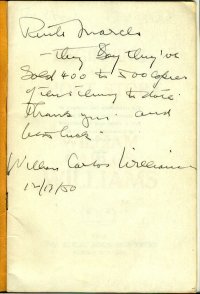 — they say they've
sold 400 to 500 copies
of this thing to date.
Thank you. and
best luck.
William Carlos Williams
12/18/50